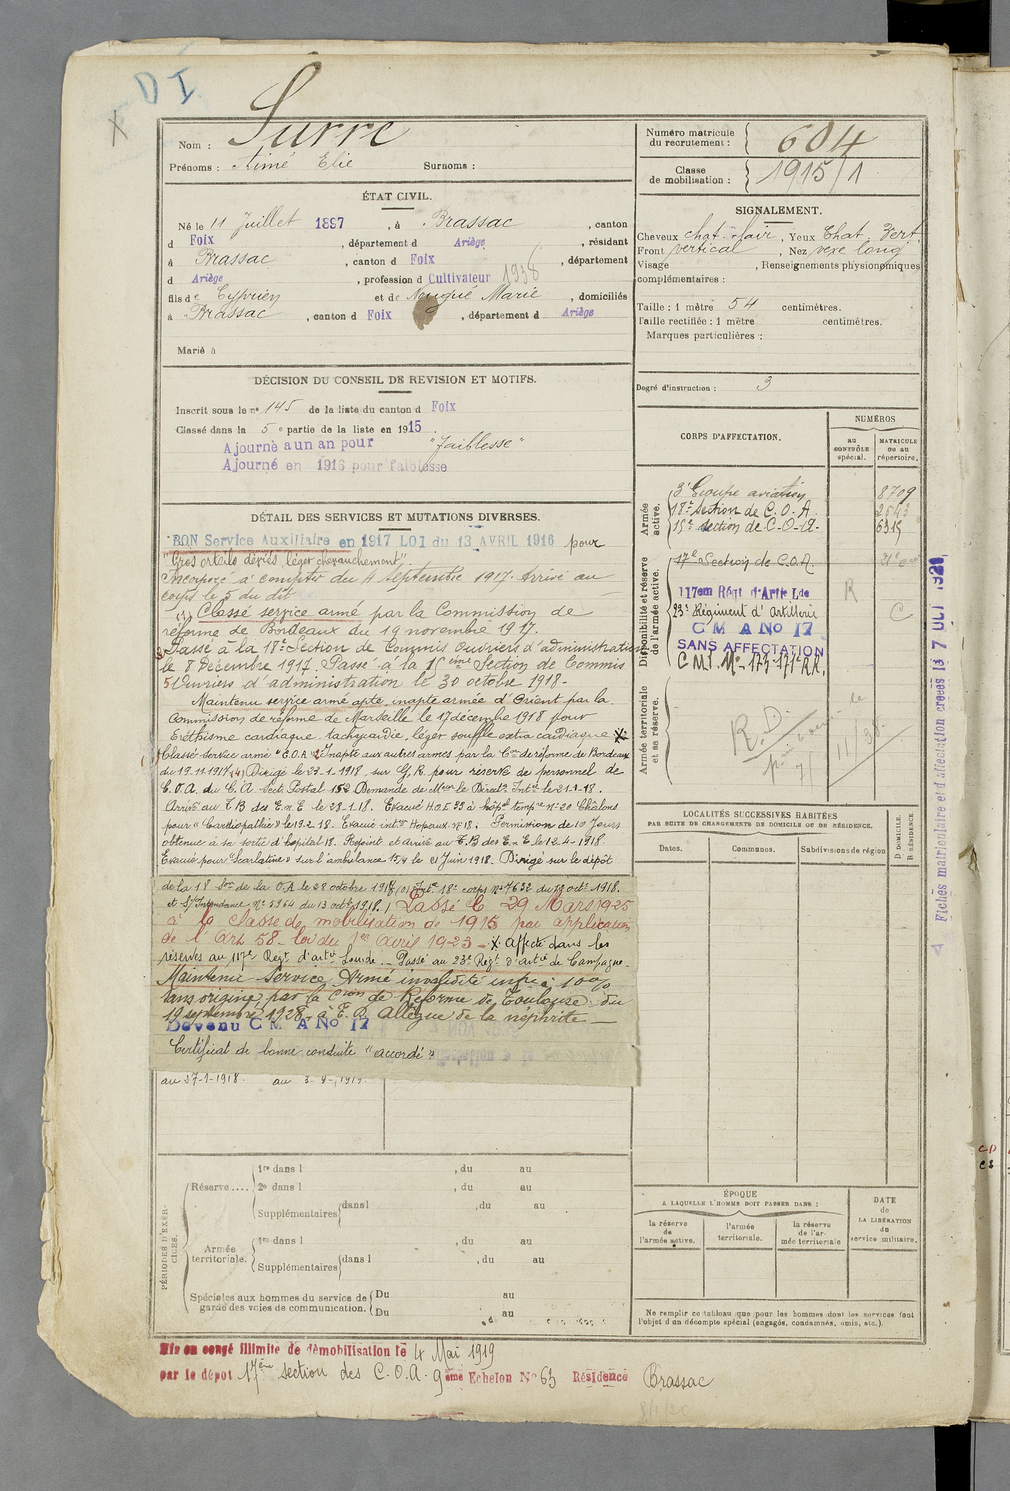 D I
X
Nom : Surre
Prénoms : Aimé Elie Surnoms :
Numéro matricule du recrutement : 604
Classe de mobilisation : 1915/1
ÉTAT CIVIL.
Né le 11 Juillet 1897, à Brassac, canton
d Foix, département d Ariège, résidant
à Brassac, canton d Foix, département
d Ariège, profession d Cultivateur 1938
fils de Cyprien et de Marie, domiciliés
à Brassac, canton d Foix, département d Ariège
Marié à
SIGNALEMENT.
Cheveux chat. clair, Yeux Chat. Vert
Front vertical, Nez vexe long
Visage , Renseignements physionomiques
complémentaires :
Taille : 1 mètre 54 centimètres.
Taille rectifiée : 1 mètre centimètres.
Marques particulières :
Degré d'instruction : 3
DÉCISION DU CONSEIL DE REVISION ET MOTIFS.
Inscrit sous le n° 145 de la liste du canton d Foix
Classé dans la 5e partie de la liste en 1915.
Ajourné a un an pour "faiblesse"
Ajourné en 1916 pour faiblesse
DÉTAIL DES SERVICES ET MUTATIONS DIVERSES.
BON Service Auxiliaire en 1917 LOI du 13 AVRIL 1916 pour
"Gros orteils déviés, léger chevauchement".
Incorporé à compter du 4 Septembre 1917. Arrivé au
corps le 5 du dit
(1) Classé service armé par la Commission de
réforme de Bordeaux du 19 novembre 1917.
Passé à la 18e Section de Commis Ouvriers d'administration
le 8 Décembre 1917. Passé à la 15ème Section de Commis
Ouvriers d'administration le 30 octobre 1918.
Maintenu service armé apte, inapte armée d'Orient par la
Commission de réforme de Marseille le 17 décembre 1918 pour
Eréthisme cardiaque tachycardie, léger souffle extra cardiaque X.
Classé service armé "C.O.A" Inapte aux autres armes par la Con de réforme de Bordeaux
du 19.11.1917 (4) Dirigé le 23-1-1918 sur G.R. pour réserve de personnel de
C.O.A. du C.A Sect Postal 152 Demande de Mr le Direct. Intce le 21-1-18.
Arrivé au T.B des E.M.E le 28-1-18. Evacué H.O.E 33 à hôpl tempre n° 20 Châlons
pour "Cardiopathie" le 19-2-18. Permission de 10 Jours
obtenue à sa sortie d'hôpital 18. Rejoint et arrivé au T.B des E.M.E le 12-4-1918.
Evacué pour "Scarlatine" sur l'ambulance 15/4 le 21 Juin 1918. Dirigé sur le dépôt
de la 18 Son de C.O.A le 28 octobre 1918 18e corps n° 7632 du octe 1918.
et S/Intendance n° 5964 du 13 octe 1918. Passé le 29 Mars 1925
à la classe de mobilisation de 1915 par application
de l'Art 58. loi du 1er avril 1923 - X. Affecté dans les
réserves au 117e Régt d'artie Lourde. - Passé au 23e Régt d'artie de Campagne.
Maintenu Service Armé invalidité infre à 10%
sans origine, par la Con de Réforme de Toulouse du
19 septembre 1928, à F.D. Allègue de la néphrite
Devenu C M A No 17
Certificat de bonne conduite "accordé"
au 27-1-1918. au 3-9-1919.
CORPS D'AFFECTATION.
NUMÉROS
au CONTRÔLE spécial.
MATRICULE ou au répertoire.
Armée active.
3e Groupe aviation 8709
18e section de C.O.A. 2543
15e section de C.O.A. 6315
Disponibilité et réserve de l'armée active.
17e Section de C.O.A.
117em Régt d'Artie Lde R
23e Régiment d'Artillerie C
C M A No 17
SANS AFFECTATION
C.M.I. No 173-171e R.R.
Armée territoriale et sa réserve.
R.D.
Fiches matriculaire et d'affectation créées le 7 OCT 1921
LOCALITÉS SUCCESSIVES HABITÉES
PAR SUITE DE CHANGEMENTS DE DOMICILE OU DE RÉSIDENCE.
Dates. Communes. Subdivisions de région
D DOMICILE. R RÉSIDENCE.
PÉRIODES D'EXERCICES.
Réserve.... 1re dans l , du au
2e dans l , du au
Supplémentaires dans l , du au
Armée territoriale. 1re dans l , du au
Supplémentaires dans l , du au
Spéciales aux hommes du service de garde des voies de communication. Du au
Du au
ÉPOQUE
A LAQUELLE L'HOMME DOIT PASSER DANS :
la réserve de l'armée active.
l'armée territoriale.
la réserve de l'armée territoriale
DATE de LA LIBÉRATION du service militaire.
Ne remplir ce tableau que pour les hommes dont les services font
l'objet d'un décompte spécial (engagés, condamnés, omis, etc.).
Mis en congé illimité de démobilisation le 4 Mai 1919
par le dépôt 17ème section des C.O.A. 9ème Echelon N° 63 Résidence Brassac